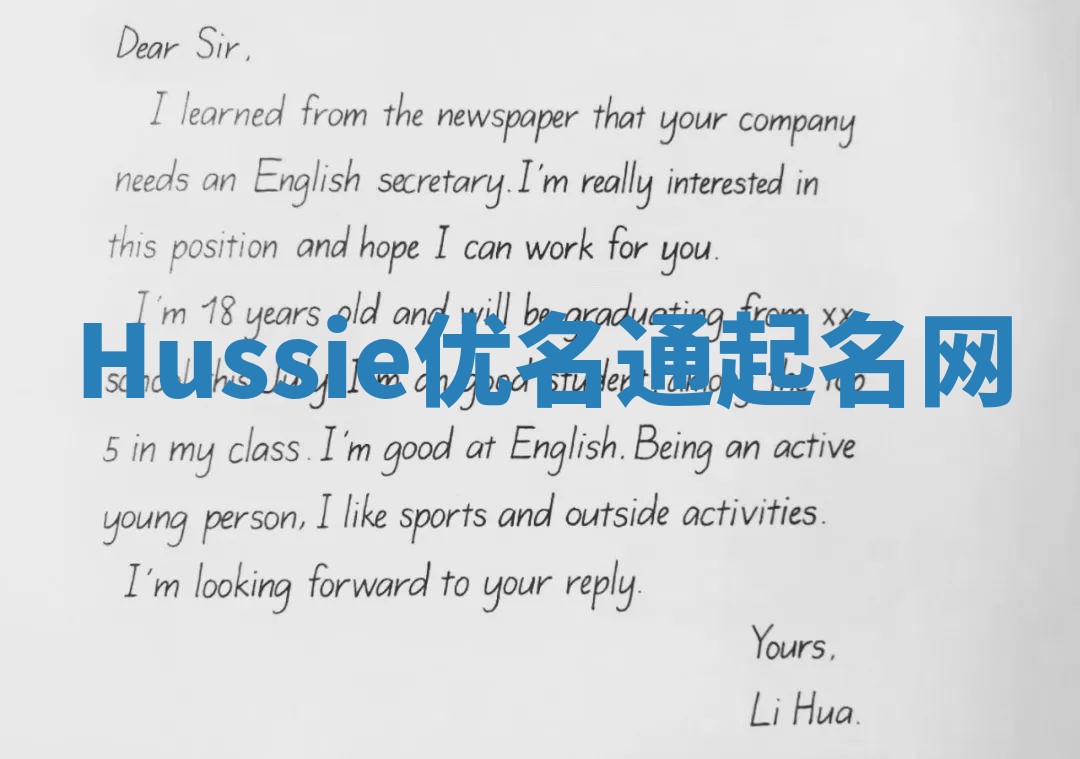 Dear Sir,
I learned from the newspaper that your company
needs an English secretary. I'm really interested in
this position and hope I can work for you.
I'm 18 years old and will be graduating from xx
Hussie优名通起名网
school this July. I'm an good student among the top
5 in my class. I'm good at English. Being an active
young person, I like sports and outside activities.
I'm looking forward to your reply.
Yours,
Li Hua.